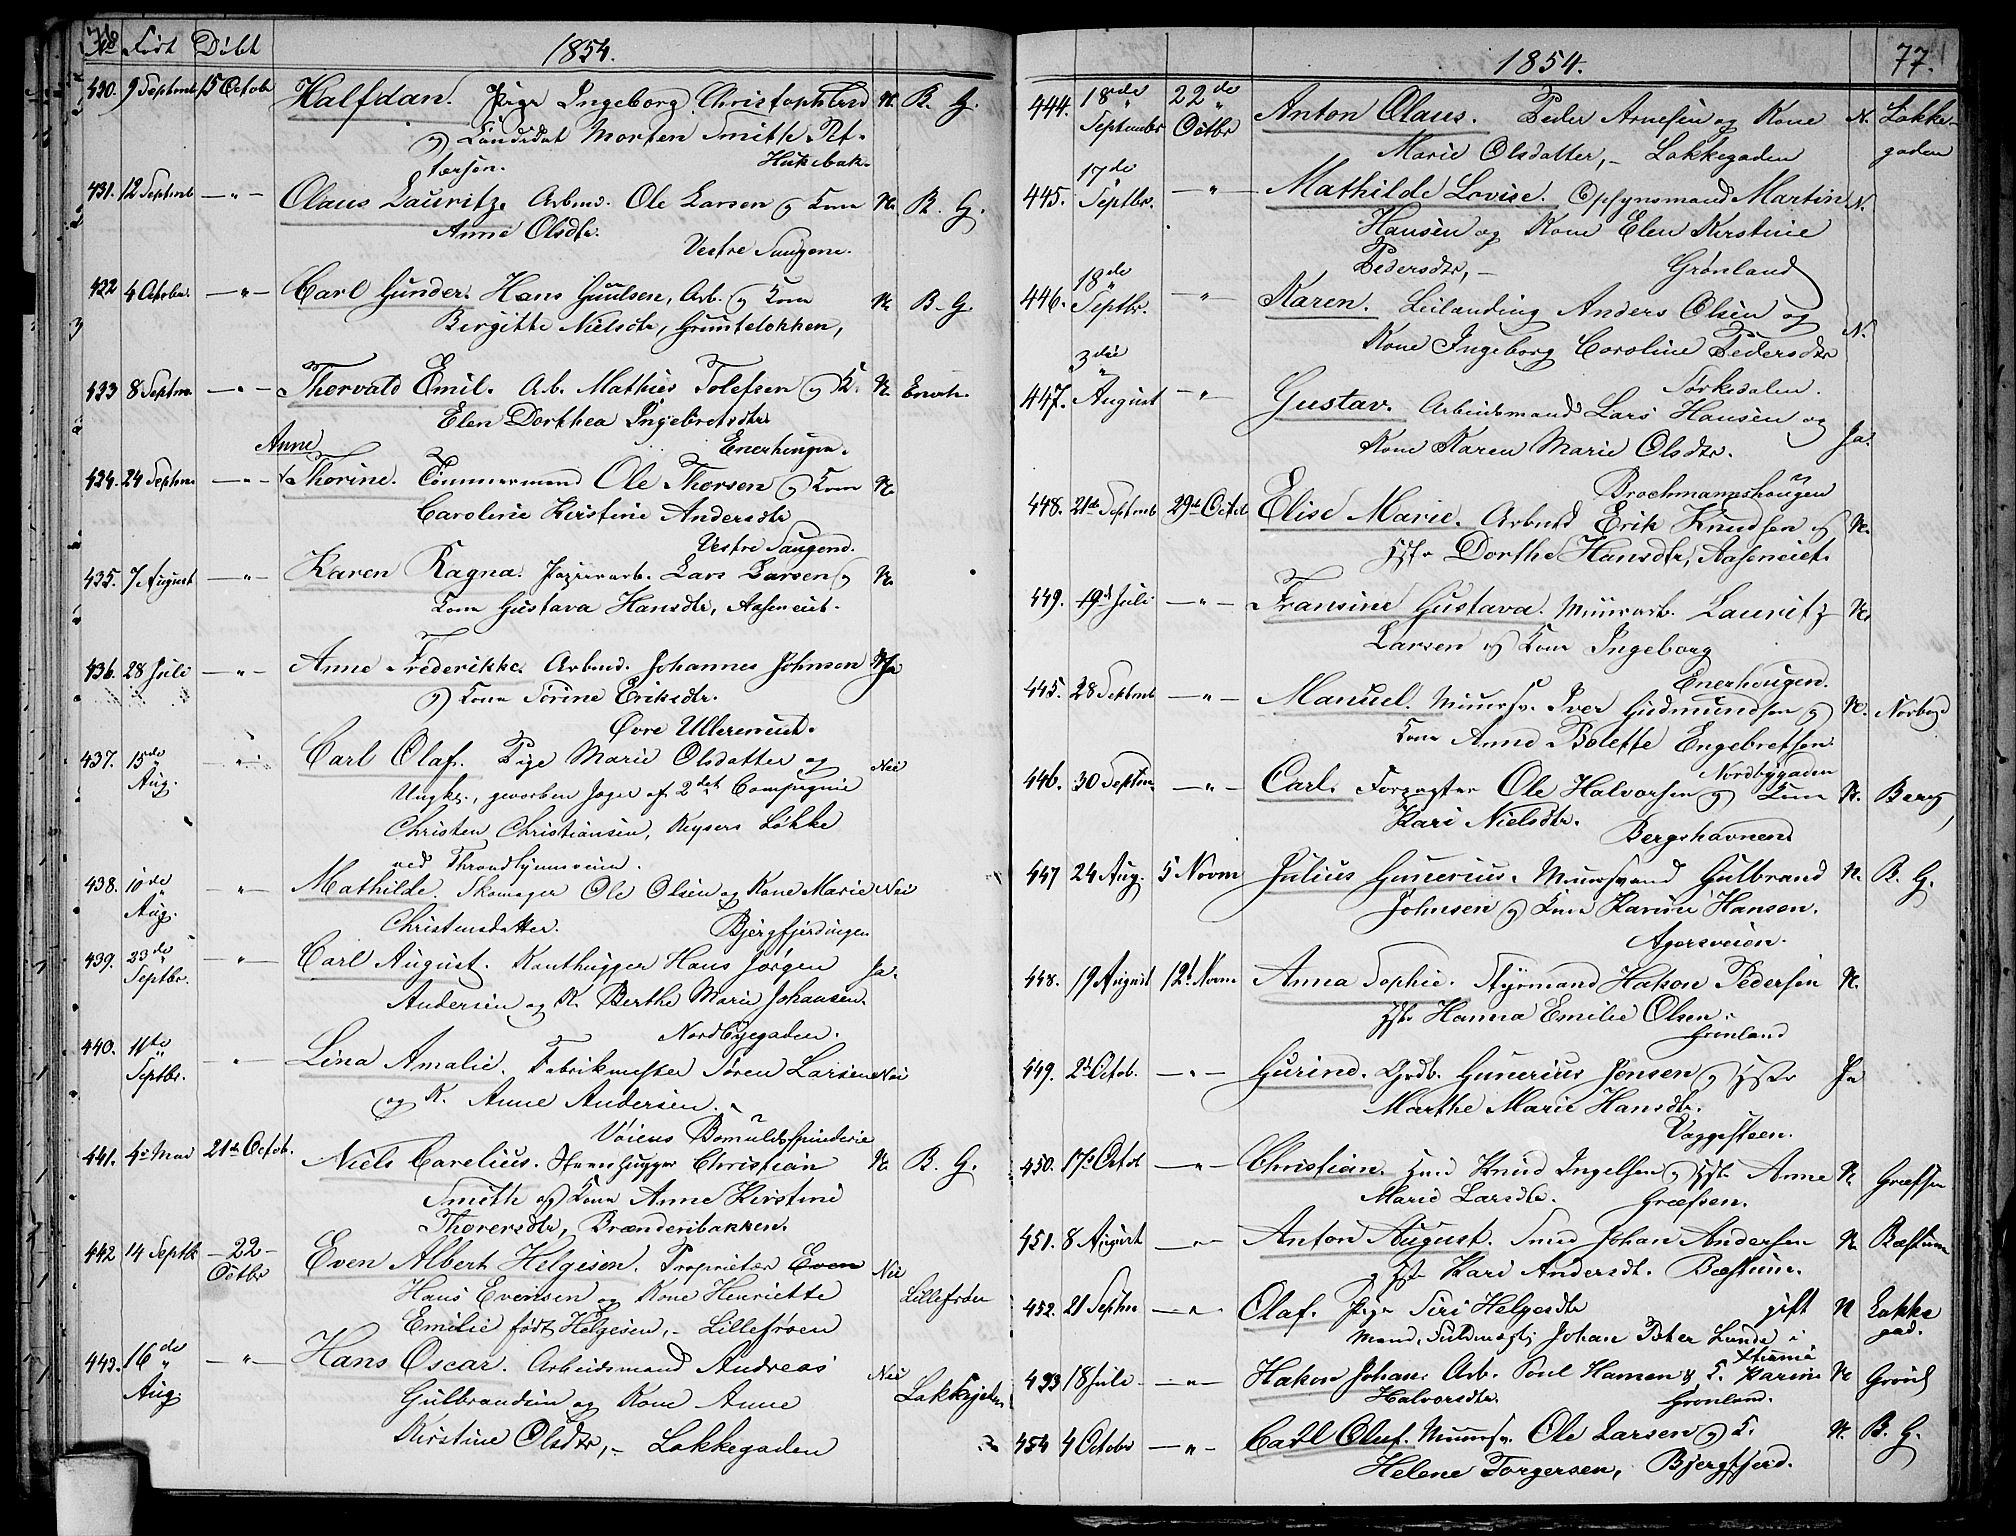 76
No Født Døbt 1854.
430. 9 Septemb 15 Octob Halfdan. Pige Ingeborg Christophersd N. B. G.
og Candidat Morten Smith Pet-
tersen. Hukebak.
431. 12 Septemb —"— Olaus Lauritz. Arbmd. Ole Larsen og Kone N. B. G.
Anne Olsdtr.
Vestre Saugene.
432 4 Octobr. —"— Carl Gunder. Hans Guulsen, Arb. og Kone N. B. G.
Birgitte Nielsdtr, Grünteløkken,
433 8 Septm. —"— Thorvald Emil. Arb. Mathias Tolefsen og K. N. Enerh.
Elen Dorthea Ingebretsdtr
Enerhougen.
Anne
434. 24 Septm. —"— Thorine. Tømmermand Ole Thorsen og Kone N.
Caroline Kirstine Andersdtr
Vestre Saugene.
435. 7 August —"— Karen Ragna. Papirarb. Lars Larsen og N.
Kone Gustava Hansdtr, Aaseneiet.
436. 28 Juli —"— Anne Frederikke. Arbmd. Johannes Johnsen Ja
og Kone Sørine Eriksdtr.
Øvre Ullereneiet.
437. 15de Aug. —"— Carl Olaf. Pige Marie Olsdatter og Nei
Ungk., gevorben Jæger af 2det Compagnie
Christen Christiansen, Keysers Løkke
ved Throndhjemsveien.
438. 10de Aug. —"— Mathilde. Skomager Ole Olsen og Kone Marie Nei
Christensdatter. Bjergfjerdingen
439. 23de Septbr. —"— Carl August. Kanthugger Hans Jørgen Ja.
Andersen og K. Berthe Marie Johansen.
Nordbyegaden.
440. 11te Septbr. —"— Lina Amalie. Fabrikmester Søren Larsen Nei
og K. Anne Andersen.
Vøiens Bomuldsspinderie
441. 4de Mai 21de Octob. Niels Carelius. Steenhugger Christian N. B. G.
Smith og Kone Anne Kirstine
Thoversdtr, Brænderibakken.
442. 14 Septbr —22— Octbr Even Albert Helgesen. Proprietær Even Nei
Hans Evensen og Kone Henriette Lillefrøen
Emilie født Helgesen, - Lillefrøen
443. 16de Aug. —"— Hans Oscar. Arbeidsmand Andreas Nei
Gulbrandsen og Kone Anne
Kirstine Olsdtr, - Lakkegaden
1854. 77.
444. 18de Septembr 22de Octbr Anton Olaus. Peder Arnesen og Kone N. Lakke-
Marie Olsdatter, - Lakkegaden gaden
445. 17de Septbr. —"— Mathilde Lovise. Opsynsmand Martin N.
Hansen og Kone Elen Kirstine
Pedersdtr, - Grønland
446. 18de Septbr. —"— Karen. Leilænding Anders Olsen og
Kone Ingeborg Caroline Pedersdtr N.
Sørkedalen.
447. 3die August —"— Gustav. Arbeidsmand Lars Hansen og
Kone Karen Marie Olsdtr. Ja.
Brochmannshougen
448. 21de Septemb 29de Octob Elise Marie. Arbmd Erik Knudsen og N.
Hstr Dorthe Hansdtr, Aaseneiet.
449. 19de Juli —"— Fransine Gustava. Muurarb. Lauritz N.
Larsen og Kone Ingeborg
Enerhougen.
445. 28 Septemb —"— Manuel. Muursv. Iver Gudmundsen og N. Norbyg
Kone Anne Bolette Engebretsen.
Nordbygaden
446. 30 Septm. —"— Carl. Forpagter Ole Halvorsen og Kone N. Berg
Kari Nielsdtr.
Bergshavnen
447 24 Aug. 5 Novm Julius Gunerius. Muursvend Gulbrand N. B. G.
Johnsen og Kone Karine Hansen.
Agersveien.
448. 19 August 12te Novm Anna Sophie. Styrmand Hakon Pedersen N.
Hstr Hanna Emilie Olsen
Grønland
449. 2d Octob. —"— Gurine. Grdb. Gunerius Jensen og Hstr Ja
Marthe Marie Hansdtr.
Vaggesteen.
450. 17de Octob —"— Christian. Hmd Knud Ingelsen og Hstr Anne N. Græfsen
Marie Larsdtr. Græfsen.
451. 8 August —"— Anton August. Smed Johan Andersen N. Bæstum
og Hstr Kari Andersdt. Bæstum.
452. 21 Septm —"— Olaf. Pige Siri Helgesdtr gift N Lakke
Mand, Fuldmægtig Johan Peter Lunde i gad.
Xtiania
453 18 Juli —"— Hakon Johan. Arb. Poul Hansen & K. Karine N Grønl
Halvorsdtr. Grønland.
454 4 Octobr —"— Carl Oluf. Muursv. Ole Larsen og K. N. B. G.
Helene Torgersen, Bjergfjerd.